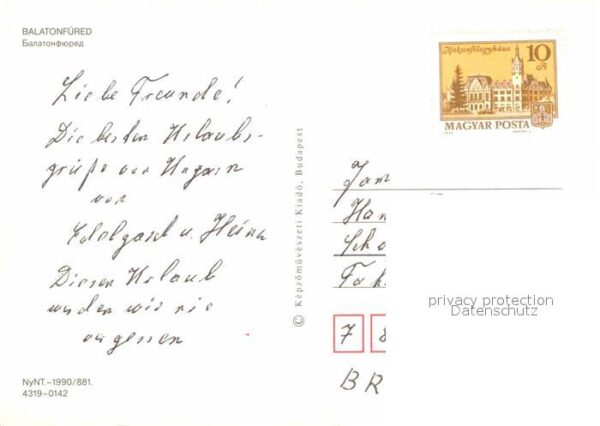 BALATONFÜRED
Балатонфюред
Liebe Freunde!
Die besten Urlaubs-
grüße aus Ungarn
von
Edelgard u. Heinz
Diesen Urlaub
werden wir nie
vergessen
NyNT.–1990/881.
4319–0142
© Képzőművészeti Kiadó, Budapest
Kiskunfélegyháza
10 Ft
MAGYAR POSTA
Fam
Han
Scho
Fak
7 8
BR
privacy protection
Datenschutz